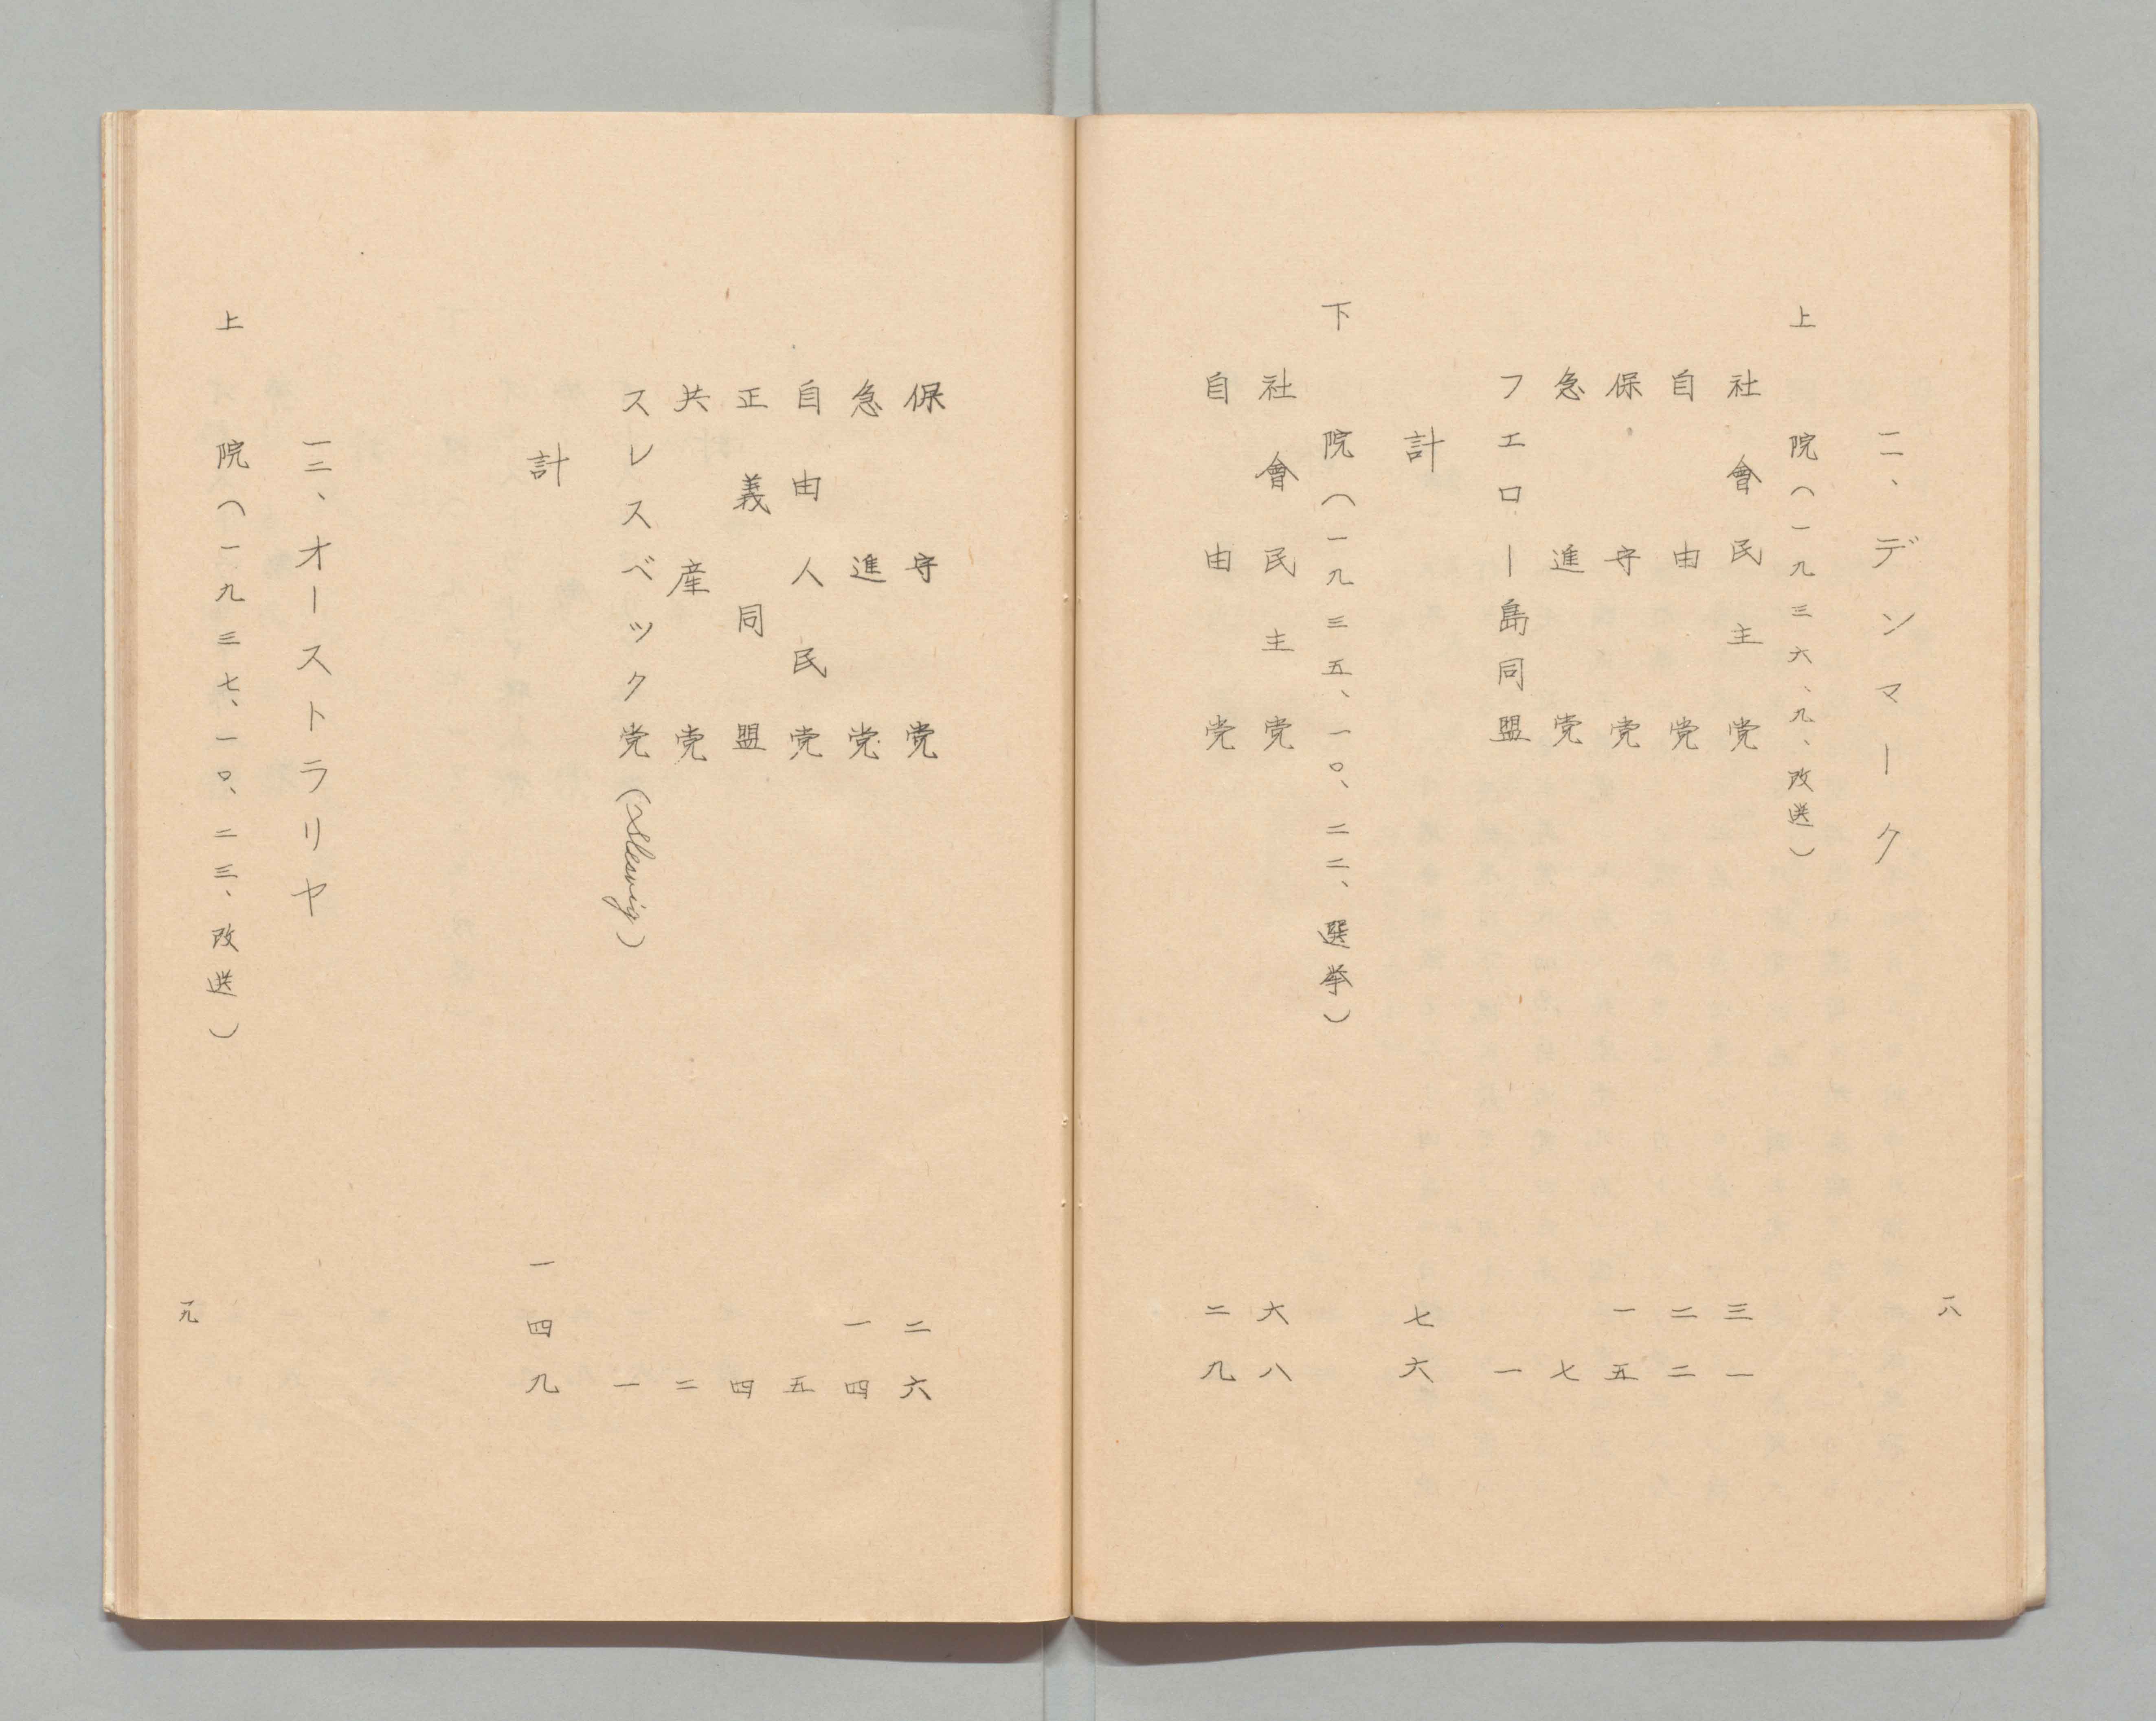 一一、デンマーク
上院(一九三六、九、改選)
社會民主党 三一
自由党 二二
保守党 一五
急進党 七
フエロー島同盟 一
計 七六
下院(一九三五、一〇、二二、選挙)
社會民主党 六八
自由党 二九
一八
保守党 二六
急進党 一四
自由人民党 五
正義同盟 四
共産党 二
スレスベック党(Slesvig) 一
計 一四九
一二、オーストラリヤ
上院(一九三七、一〇、二三、改選)
一九